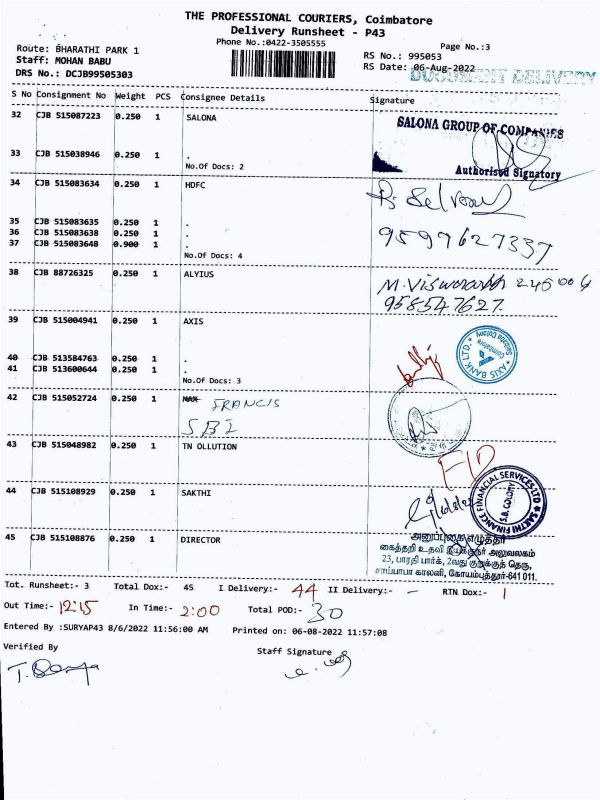 THE PROFESSIONAL COURIERS, Coimbatore
Delivery Runsheet - P43
Phone No.:0422-3505555
Page No.:3
Route: BHARATHI PARK 1
RS No.: 995053
Staff: MOHAN BABU
RS Date: 06-Aug-2022
DRS No.: DCJB99505303
DOCUMENT DELIVERY
S No Consignment No Weight PCS Consignee Details Signature
32 CJB 515087223 0.250 1 SALONA
SALONA GROUP OF COMPANIES
33 CJB 515038946 0.250 1 .
No.Of Docs: 2
Authorised Signatory
34 CJB 515083634 0.250 1 HDFC
35 CJB 515083635 0.250 1 .
36 CJB 515083638 0.250 1 .
37 CJB 515083648 0.900 1 .
9597627337
No.Of Docs: 4
38 CJB 88726325 0.250 1 ALYIUS
958547627
39 CJB 515004941 0.250 1 AXIS
AXIS BANK LTD. Coimbatore
40 CJB 513584763 0.250 1 .
41 CJB 513600644 0.250 1 .
No.Of Docs: 3
42 CJB 515052724 0.250 1 FRANCIS
SBI
43 CJB 515048982 0.250 1 TN OLLUTION
44 CJB 515108929 0.250 1 SAKTHI
SAKTHI FINANCE FINANCIAL SERVICES LTD
S.B. COLONY
45 CJB 515108876 0.250 1 DIRECTOR
கைத்தறி உதவி இயக்குநர் அலுவலகம்
23, பாரதி பார்க், 2வது குறுக்குத் தெரு,
சாய்பாபா காலனி, கோயம்புத்தூர்-641 011.
Tot. Runsheet:- 3 Total Dox:- 45 I Delivery:- 44 II Delivery:- - RTN Dox:- 1
Out Time:- 12:15 In Time:- 2:00 Total POD:- 30
Entered By :SURYAP43 8/6/2022 11:56:00 AM Printed on: 06-08-2022 11:57:08
Verified By
Staff Signature